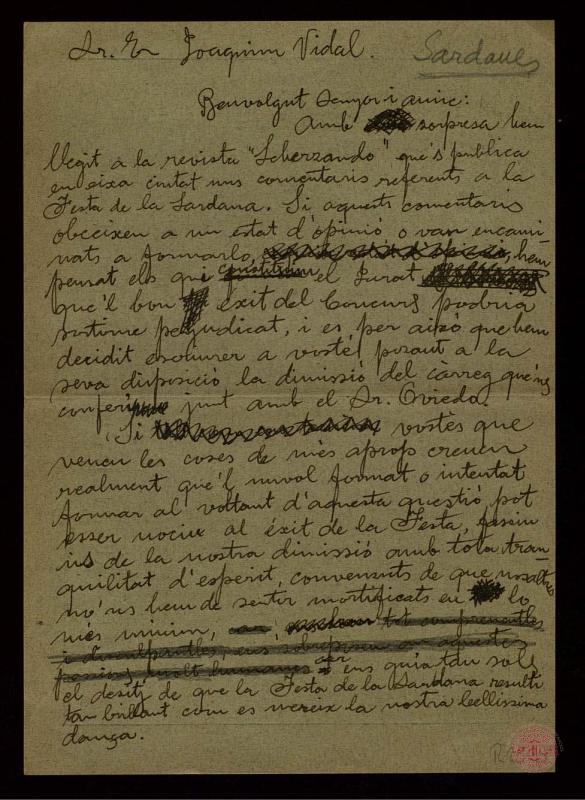 Sr. En Joaquim Vidal.
Sardanes
Benvolgut senyor i amic:
Amb sorpresa hem
llegit a la revista "Scherzando" que's publica
en eixa ciutat uns comentaris referents a la
Festa de la Sardana. Si aquests comentaris
obeeixen a un estat d'opinió o van encami-
nats a formarlo, hem
pensat els qui constituim el Jurat
que'l bon éxit del Concurs podria
sortirne perjudicat, i es per això que hem
decidit escriurer a vosté posant a la
seva disposició la dimissió del carreg que'ns
conferi junt amb el Sr. Oviedo.
Si vostès que
veuen les coses de més aprop creuen
realment que'l nuvol format o intentat
formar al voltant d'aquesta questió pot
esser nociu al éxit de la Festa, fassin
us de la nostra dimissió amb tota tran
quilitat d'esperit, convensuts de que nosaltres
no'ns hem de sentir mortificats en lo
més minim, tot comprenentles
i disculpantles, ens sobreposem an aquestes
passions molt humanes car ens guia tan sols
el desitj de que la Festa de la Sardana resulti
tan brillant com es mereix la nostra bellissima
dança.